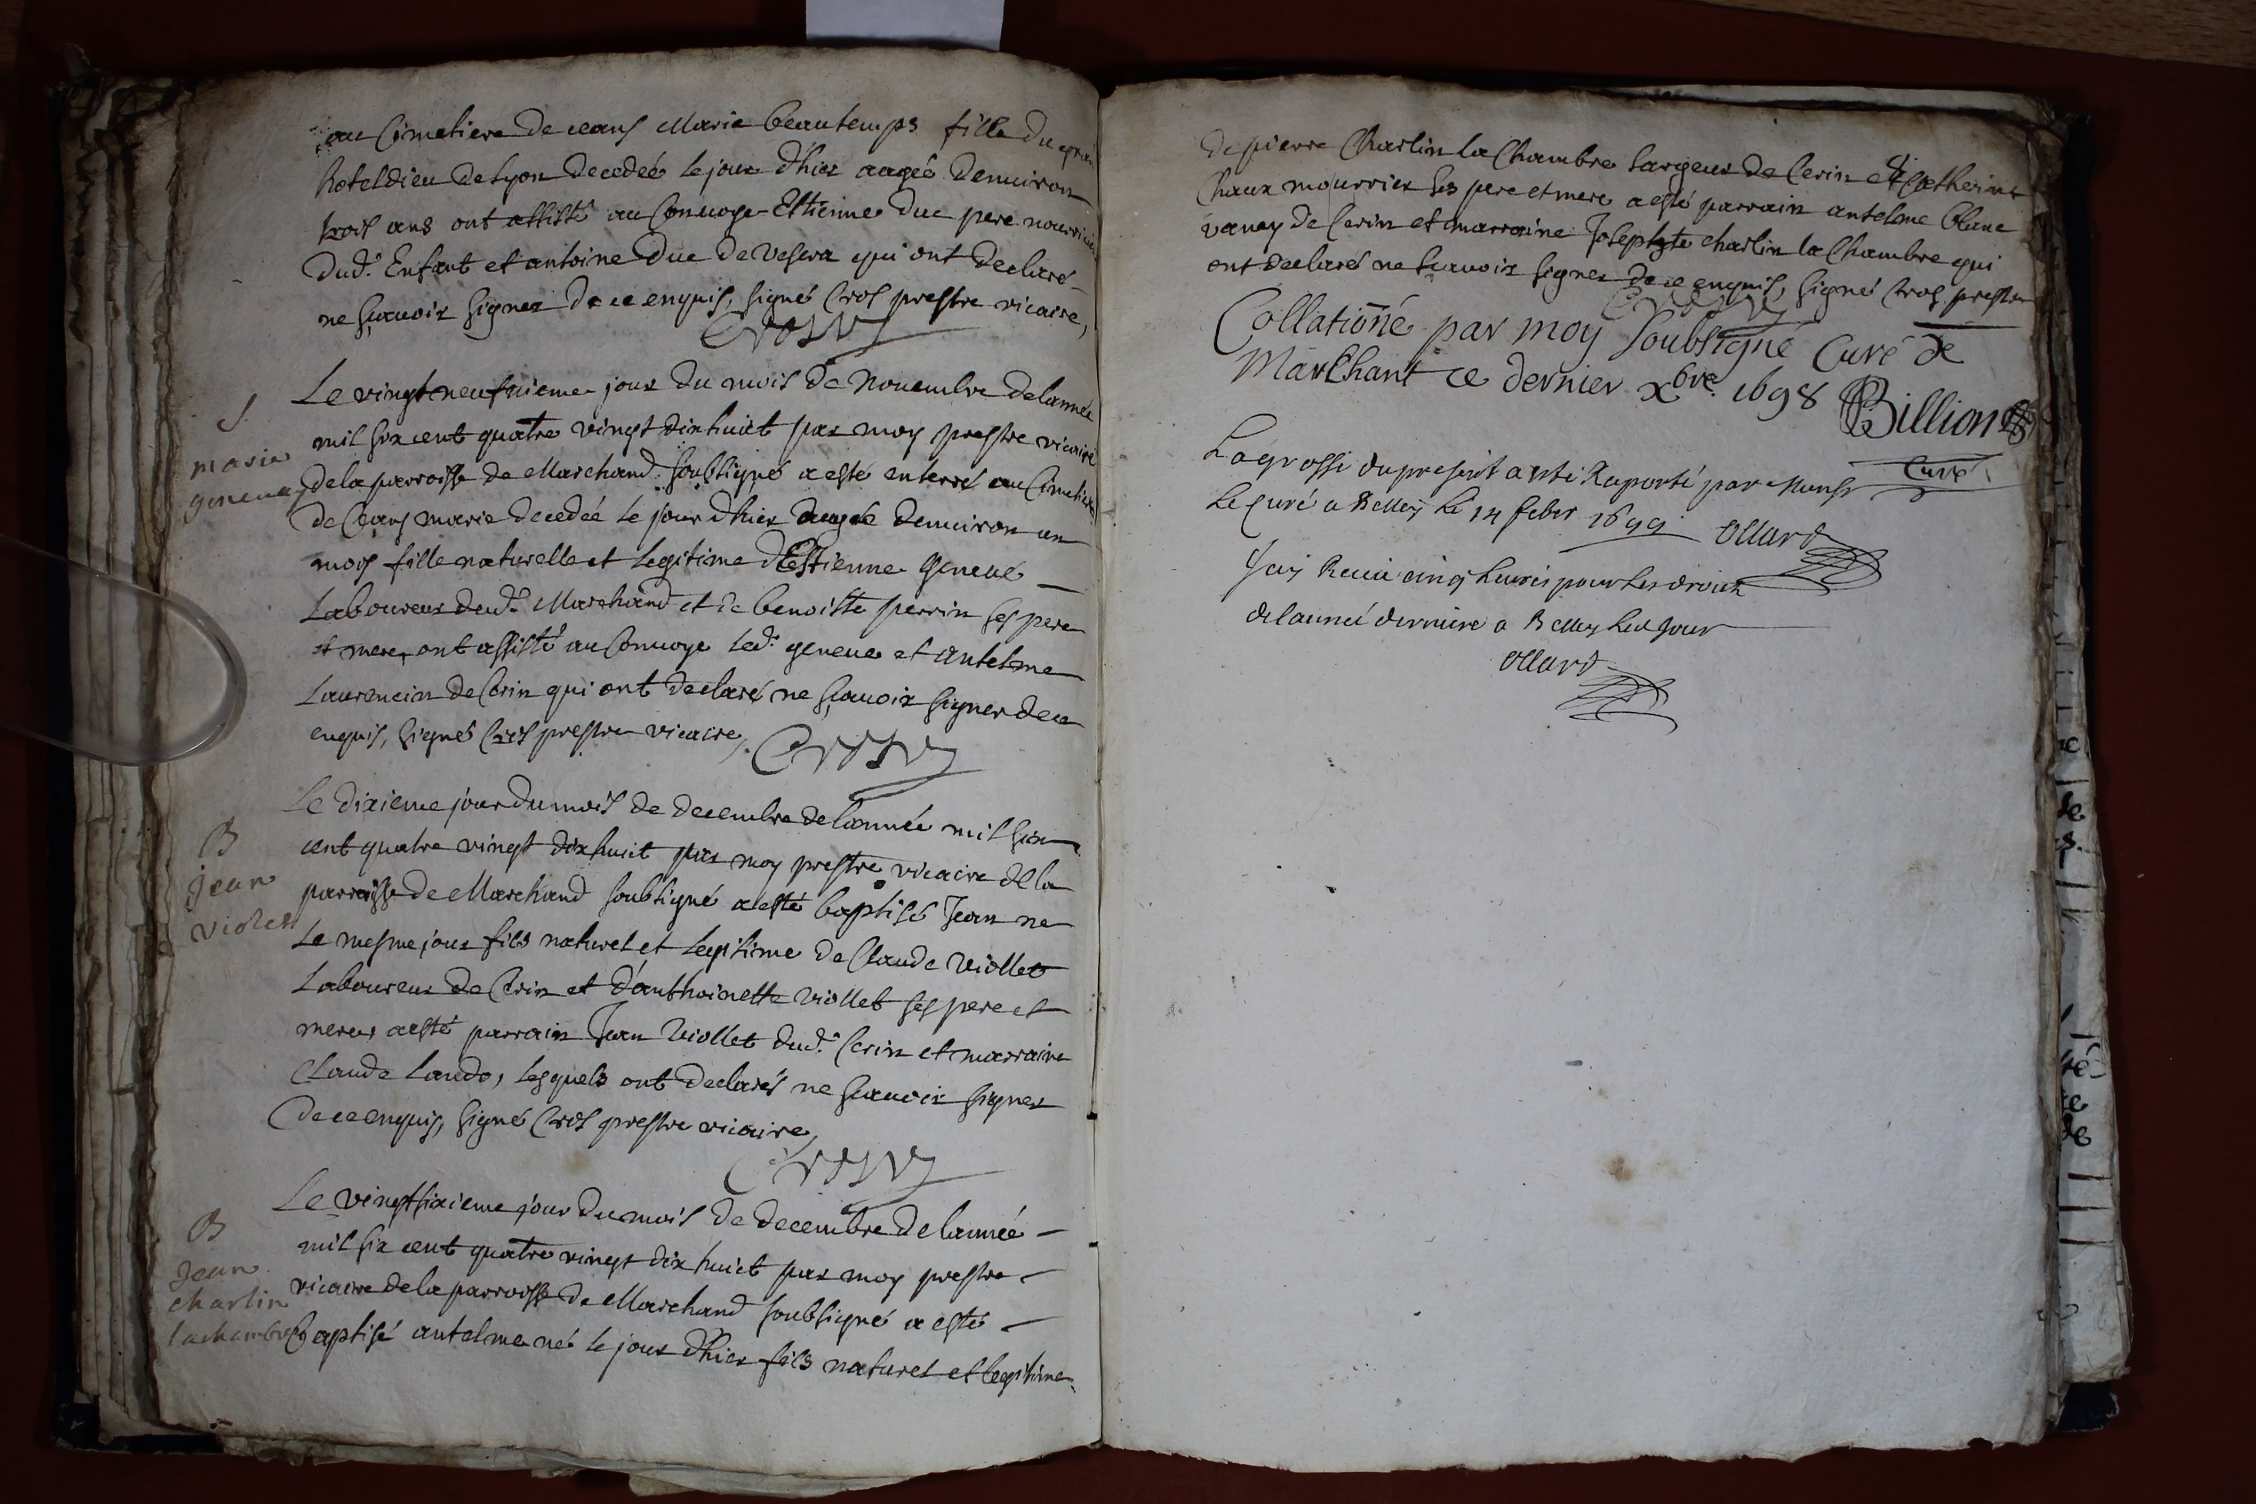 au Cimetiere de ceans Marie beautemps fille du grand
hoteldieu de Lyon decedeé le jour d'hier aageé denuiron
trois ans ont assisté au Conuoye Estienne duc pere nourricier
dud.^t Enfant et antoine Duc de Vesera qui ont declaré
ne sçauoir signer de ce enquis, signé Cros prestre vicaire,
Cros V
S
marie
geneuay
Le vingt neufuieme jour du mois de Nouembre de lanneé
mil six cent quatre vingt dix huict par moy prestre vicaire
de la parroisse de Marchand soubsigné a esté enterré au Cimetiere
de Ceans marie decedeé le jour d'hier aageé denuiron un
mois fille naturelle et legitime d'Estienne geneué
laboureur dud.^t Marchand et de benoiste perrin ses pere
et mere, ont assisté au Conuoye led.^t geneue et antelme
laurencin de Cerin qui ont declaré ne sçauoir signer de ce
enquis, signé Cros prestre vicaire,
Cros V
B
jean
violet
Le dixieme jour du mois de decembre de lanneé mil six
cent quatre vingt dix huict par moy prestre vicaire de la
parroisse de Marchand soubsigné a esté baptisé Jean ne
le mesme jour fils naturel et legitime de Claude Viollet
laboureur de Cerin et d'anthoinette viollet ses pere et
mere, a esté parrain Jean Viollet dud.^t Cerin et marraine
Claude Lando, lesquels ont declarés ne sçauoir signer
de ce enquis, signé Cros prestre vicaire,
Cros V
B
Jean
charlin
lachambre
Le vingt sixieme jour du mois de decembre de lanneé
mil six cent quatre vingt dix huict par moy prestre
vicaire de la parroisse de Marchand soubsigné a esté
baptisé antelme né le jour d'hier fils naturel et legitime
de pierre Charlin la Chambre sargeur de Cerin et Catherine
Chaux mourrier ses pere et mere a esté parrain antelme blanc
vanay de Cerin et marraine Josephte charlin la Chambre qui
ont declarés ne sçauoir signer de ce enquis, signé Cros prestre
Cros V
Collationné par moy soubsigné Curé de
Marchant ce dernier xbre 1698 Billion
Curé
La grosse du present a esté Raporté par Monsr
le Curé a Belley le 14 febr 1699 Ollard
J'ay Receu cinq liures pour les droits
de lanneé derniere a Belley led jour
Ollard